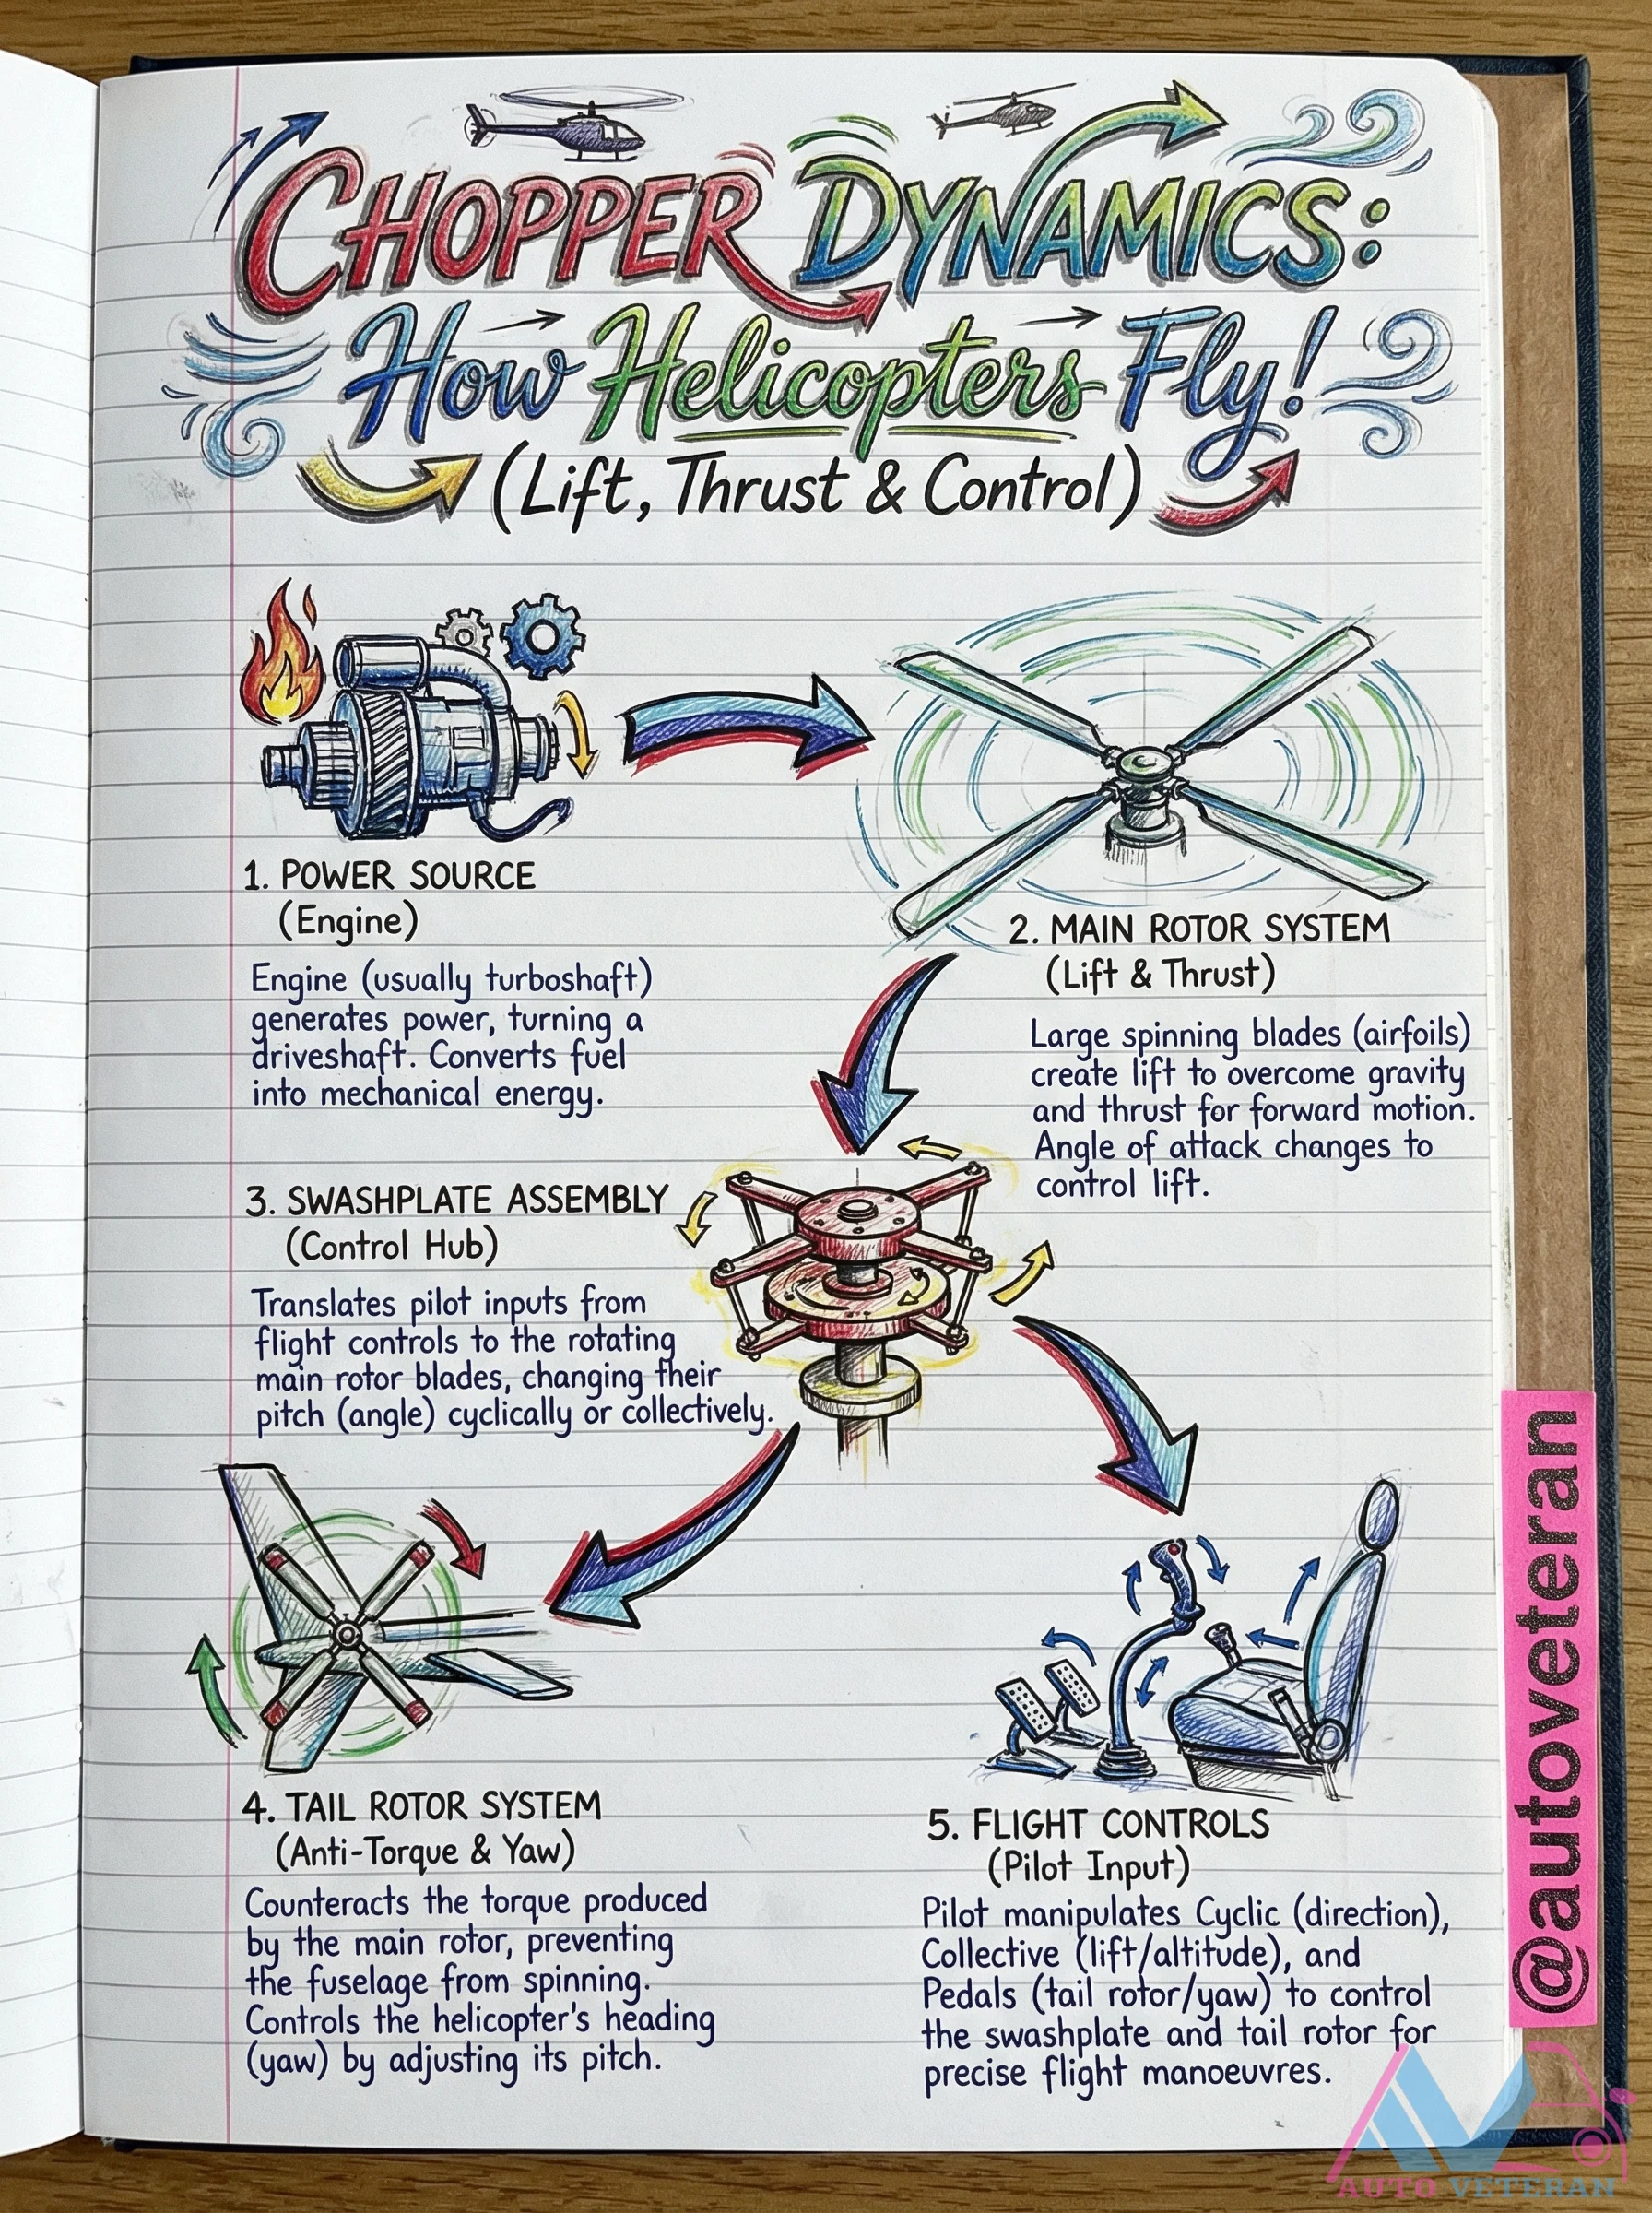 CHOPPER DYNAMICS:
How Helicopters Fly!
(Lift, Thrust & Control)
1. POWER SOURCE
(Engine)
Engine (usually turboshaft)
generates power, turning a
driveshaft. Converts fuel
into mechanical energy.
2. MAIN ROTOR SYSTEM
(Lift & Thrust)
Large spinning blades (airfoils)
create lift to overcome gravity
and thrust for forward motion.
Angle of attack changes to
control lift.
3. SWASHPLATE ASSEMBLY
(Control Hub)
Translates pilot inputs from
flight controls to the rotating
main rotor blades, changing their
pitch (angle) cyclically or collectively.
4. TAIL ROTOR SYSTEM
(Anti-Torque & Yaw)
Counteracts the torque produced
by the main rotor, preventing
the fuselage from spinning.
Controls the helicopter's heading
(yaw) by adjusting its pitch.
5. FLIGHT CONTROLS
(Pilot Input)
Pilot manipulates Cyclic (direction),
Collective (lift/altitude), and
Pedals (tail rotor/yaw) to control
the swashplate and tail rotor for
precise flight manoeuvres.
@autoveteran
AUTO VETERAN